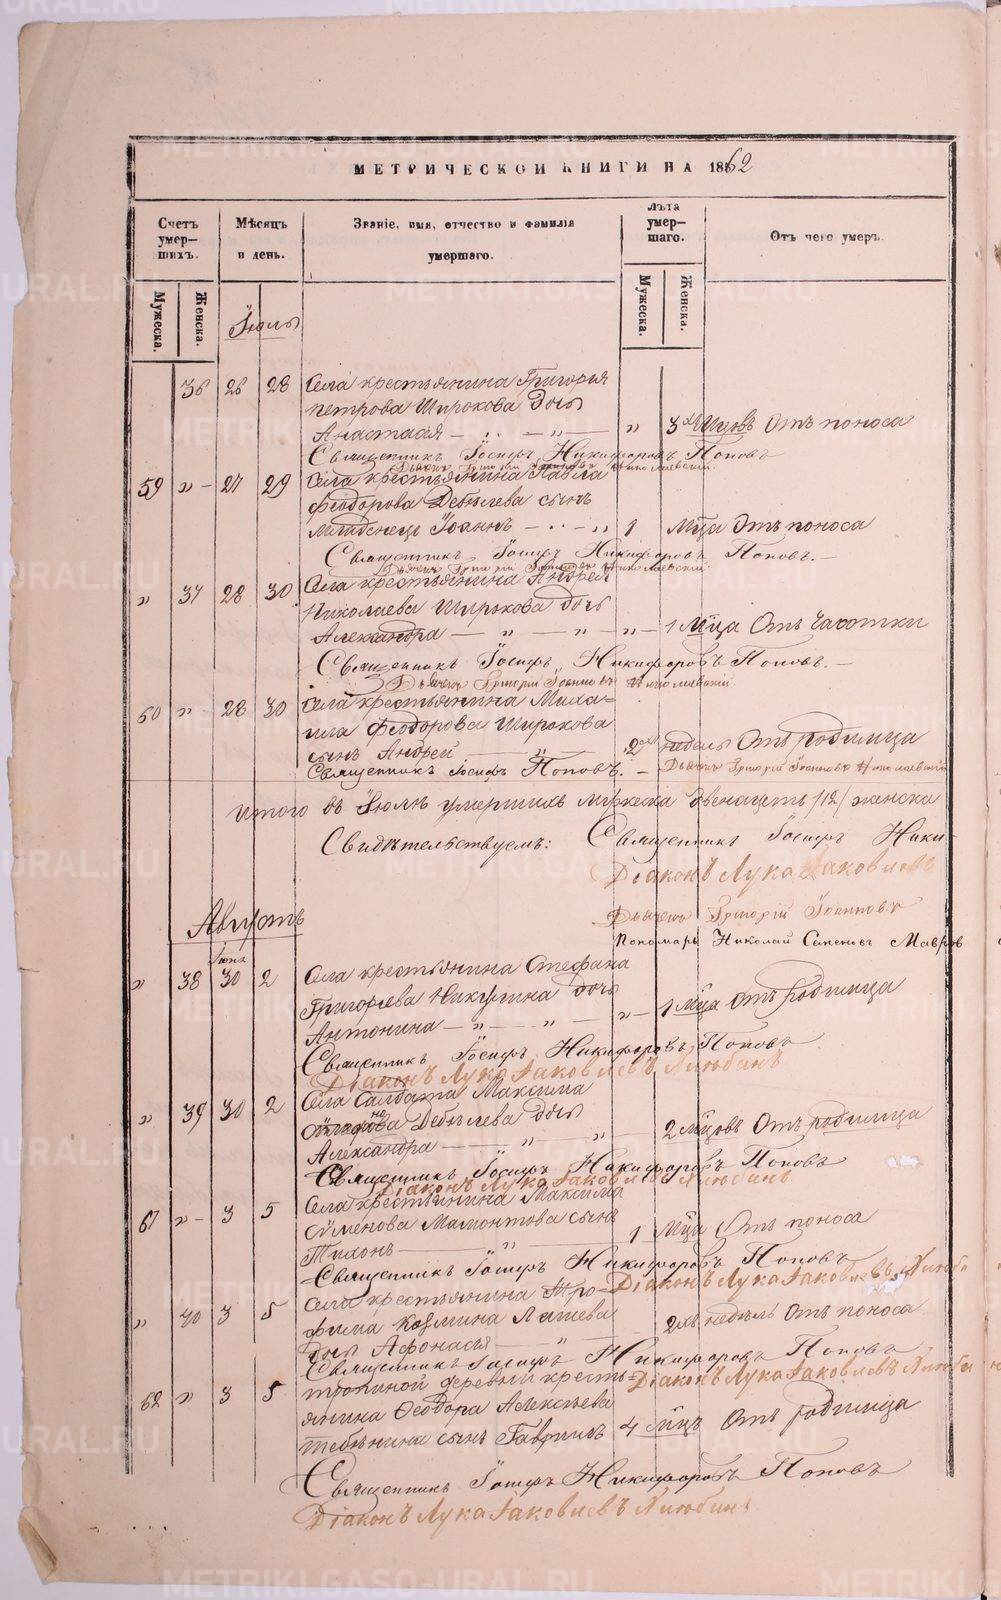 МЕТРИЧЕСКОЙ КНИГИ НА 1862
Счетъ умер-шихъ.
Мѣсяцъ и день.
Званіе, имя, отчество и фамилія умершаго.
Лѣта умер-шаго.
Отъ чего умеръ.
Мужеска.
Женска.
Мужеска.
Женска.
Іюль
36 26 28 Села крестьянина Григорья
Петрова Широкова дочь
Анастасія — " — " — " 3 Мцовъ Отъ поноса
Священникъ Іосифъ Никифоровъ Поповъ
Дьячекъ Григорій Іоанновъ
59 " — 27 29 Села крестьянина Павла
Феодорова Дебелева сынъ
Младенецъ Іоаннъ — " — " 1 Мца Отъ поноса
Священникъ Іосифъ Никифоровъ Поповъ. —
Дьячекъ Григорій Іоанновъ
" 37 28 30 Села крестьянина Андрея
Николаева Широкова дочь
Александра — " — " — " — 1 Мца Отъ чахотки
Священникъ Іосифъ Никифоровъ Поповъ. —
Дьячекъ Григорій Іоанновъ
60 " 28 30 Села крестьянина Миха=
ила Феодорова Широкова
сынъ Андрей — " — 2 недель Отъ родимца
Священникъ Іосифъ Поповъ. — Дьячекъ Григорій Іоанновъ
Итого въ Іюлѣ умершихъ мужеска двенацеть /12/ женска
Свидѣтельствуемъ: Священникъ Іосифъ Ники-
Діаконъ Лука Іаковлевъ
Дьячекъ Григорій Іоанновъ
Августъ
Пономарь Николай Мавров
" 38 30 2 Села крестьянина Стефана
Григорьева Никулина дочь
Антонина — " — " — " — 1 Мца Отъ родимца
Священникъ Іосифъ Никифоровъ Поповъ
Діаконъ Лука Іаковлевъ
" 39 30 2 Села Салдата Максима
Дебелева дочь
Александра — " — " — 2 Мцовъ Отъ родимца
Священникъ Іосифъ Никифоровъ Поповъ
Діаконъ Лука Іаковлевъ
61 " — 3 5 Села крестьянина Максима
Сѵменова Мамонтова сынъ
Тихонъ — " — 1 Мца Отъ поноса
Священникъ Іосифъ Никифоровъ Поповъ
Діаконъ Лука Іаковлевъ
" 40 3 5 Села крестьянина Тро-
фима Козмина
дочь Афонасья — " 2хъ недѣль Отъ поноса
Священникъ Іосифъ Никифоровъ Поповъ
Діаконъ Лука Іаковлевъ
62 " 3 5 деревни кресть=
янина Феодора Алексѣева
сынъ Гавриилъ 4 Мцъ Отъ родимца
Священникъ Іосифъ Никифоровъ Поповъ
Діаконъ Лука Іаковлевъ
METRIKI.GASO-URAL.RU